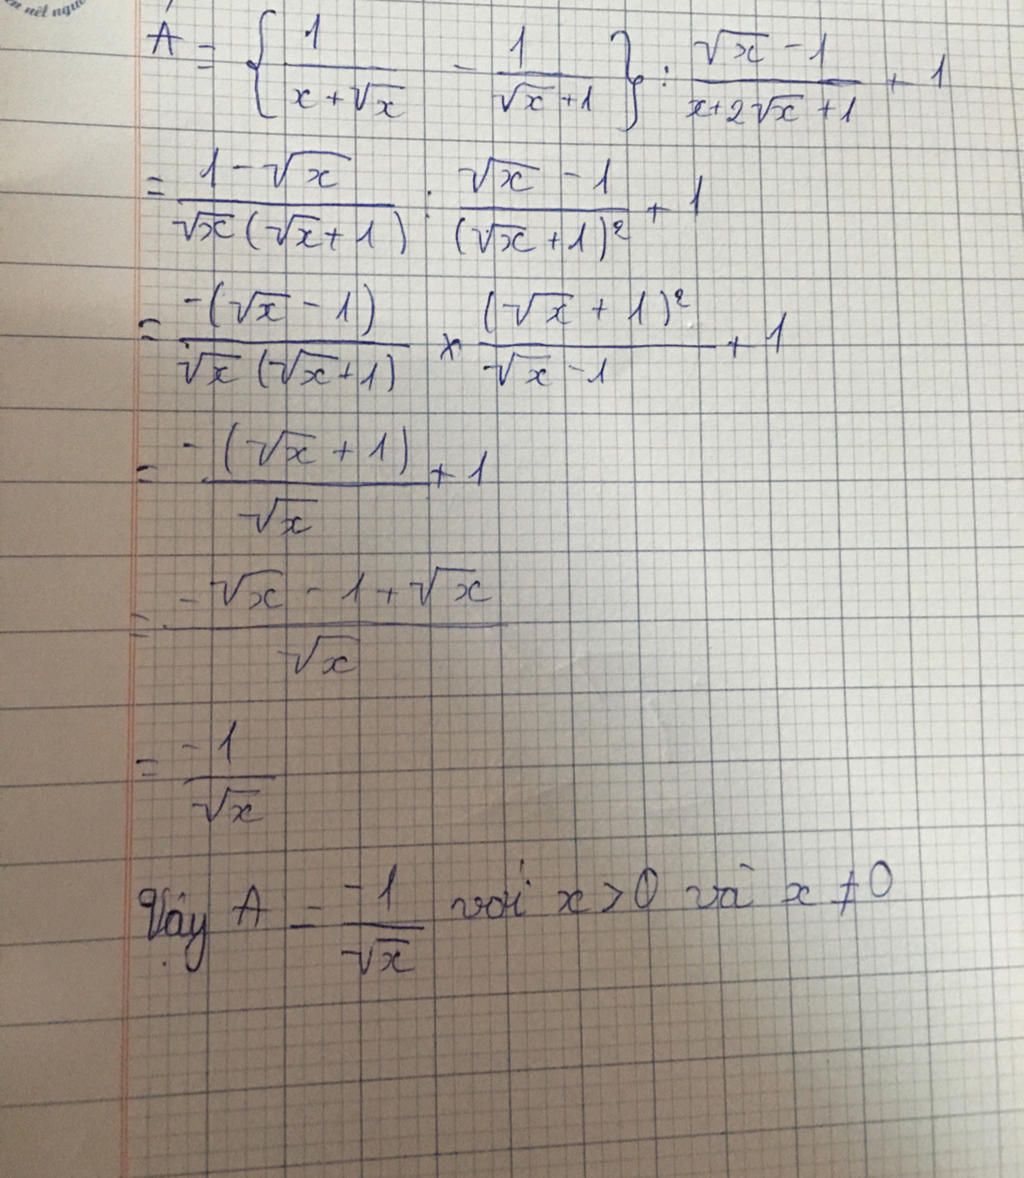 ên nét ngườ
A = { 1/(x + √x) - 1/(√x + 1) } : (√x - 1)/(x + 2√x + 1) + 1
= (1 - √x)/(√x (√x + 1)) : (√x - 1)/((√x + 1)²) + 1
= -(√x - 1)/(√x (√x + 1)) × (√x + 1)²/(√x - 1) + 1
= -(√x + 1)/√x + 1
= (-√x - 1 + √x)/√x
= -1/√x
Vậy A = -1/√x với x > 0 và x ≠ 0